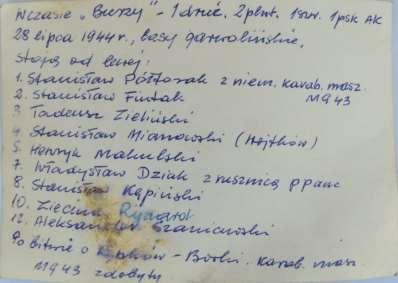 Wczasie „Burzy" - 1 druż. 2plut. 1szw. 1psk AK
28 lipca 1944 r., lasy garwolińskie,
Stoją od lewej:
1. Stanisław Półtorak z niem. karab. masz.
MG43
2. Stanisław
3 Tadeusz Zieliński
4 Stanisław Mianowski (Hojtków)
5. Henryk Makulski
7. Władysław Dziak z rusznicą ppanc
8. Stanisław Kąpiński
10. Ziecina Ryszard
12. Aleksander
Po bitwie o - Borki. Karab. masz.
MG43 zdobyty